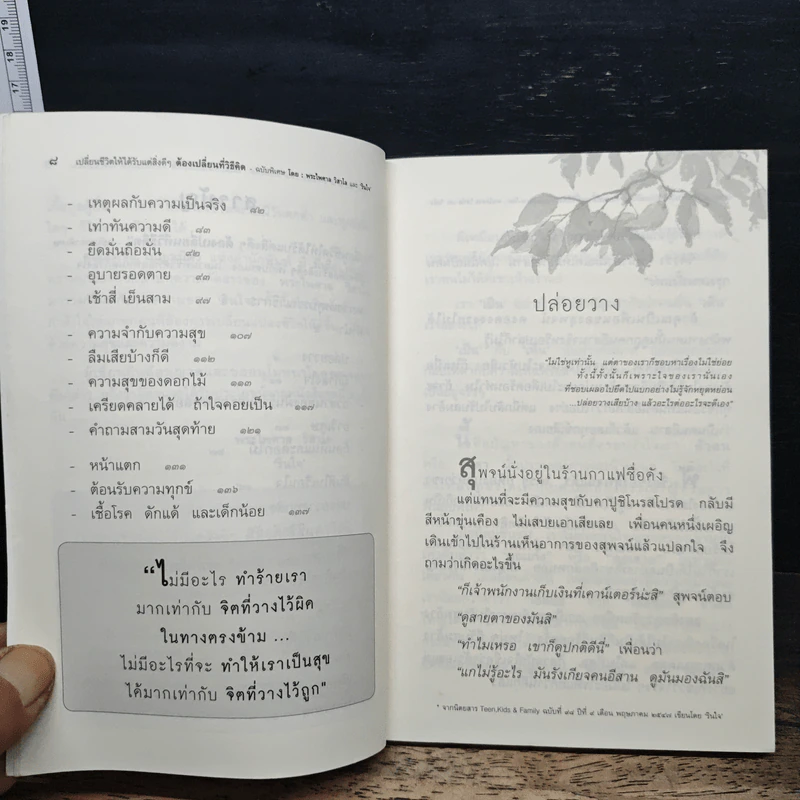 19
18
17
๘ เปลี่ยนชีวิตให้ได้รับแต่สิ่งดีๆ ต้องเปลี่ยนที่วิธีคิด - ฉบับพิเศษ โดย : พระไพศาล วิสาโล และ วินใจ
- เหตุผลกับความเป็นจริง ๘๒
- เท่าทันความดี ๘๓
- ยึดมั่นถือมั่น ๙๒
- อุบายรอดตาย ๙๓
- เช้าสี่ เย็นสาม ๙๗
- ความจำกับความสุข ๑๐๗
- ลืมเสียบ้างก็ดี ๑๑๒
- ความสุขของดอกไม้ ๑๑๓
- เครียดคลายได้ ถ้าใจคอยเป็น ๑๑๗
- คำถามสามวันสุดท้าย ๑๒๑
- หน้าแตก ๑๓๑
- ต้อนรับความทุกข์ ๑๓๖
- เชื้อโรค ดักแด้ และเด็กน้อย ๑๓๗
"ไม่มีอะไร ทำร้ายเรา
มากเท่ากับ จิตที่วางไว้ผิด
ในทางตรงข้าม ...
ไม่มีอะไรที่จะ ทำให้เราเป็นสุข
ได้มากเท่ากับ จิตที่วางไว้ถูก"
ปล่อยวาง
"ไม่ใช่หูเท่านั้น แต่ตาของเราก็ชอบหาเรื่องไม่ใช่ย่อย
ทั้งนี้ทั้งนั้นก็เพราะใจของเรานั่นเอง
ที่ชอบเผลอไปยึดไปแบกอย่างไม่รู้จักหยุดหย่อน
ปล่อยวางเสียบ้าง แล้วอะไรต่ออะไรจะดีเอง"
สุพจน์นั่งอยู่ในร้านกาแฟชื่อดัง
แต่แทนที่จะมีความสุขกับคาปูชิโนรสโปรด กลับมี
สีหน้าขุ่นเคือง ไม่สบายเอาเสียเลย เพื่อนคนหนึ่งเผอิญ
เดินเข้าไปในร้านเห็นอาการของสุพจน์แล้วแปลกใจ จึง
ถามว่าเกิดอะไรขึ้น
"ก็เจ้าพนักงานเก็บเงินที่เคาน์เตอร์น่ะสิ" สุพจน์ตอบ
"ดูสายตาของมันสิ"
"ทำไมเหรอ เขาก็ดูปกติดีนี่" เพื่อนว่า
"แกไม่รู้อะไร มันรังเกียจคนอีสาน ดูมันมองฉันสิ"
* จากนิตยสาร Teen,Kids & Family ฉบับที่ ๔๘ ปีที่ ๔ เดือน พฤษภาคม ๒๕๔๗ เขียนโดย 'รินใจ'